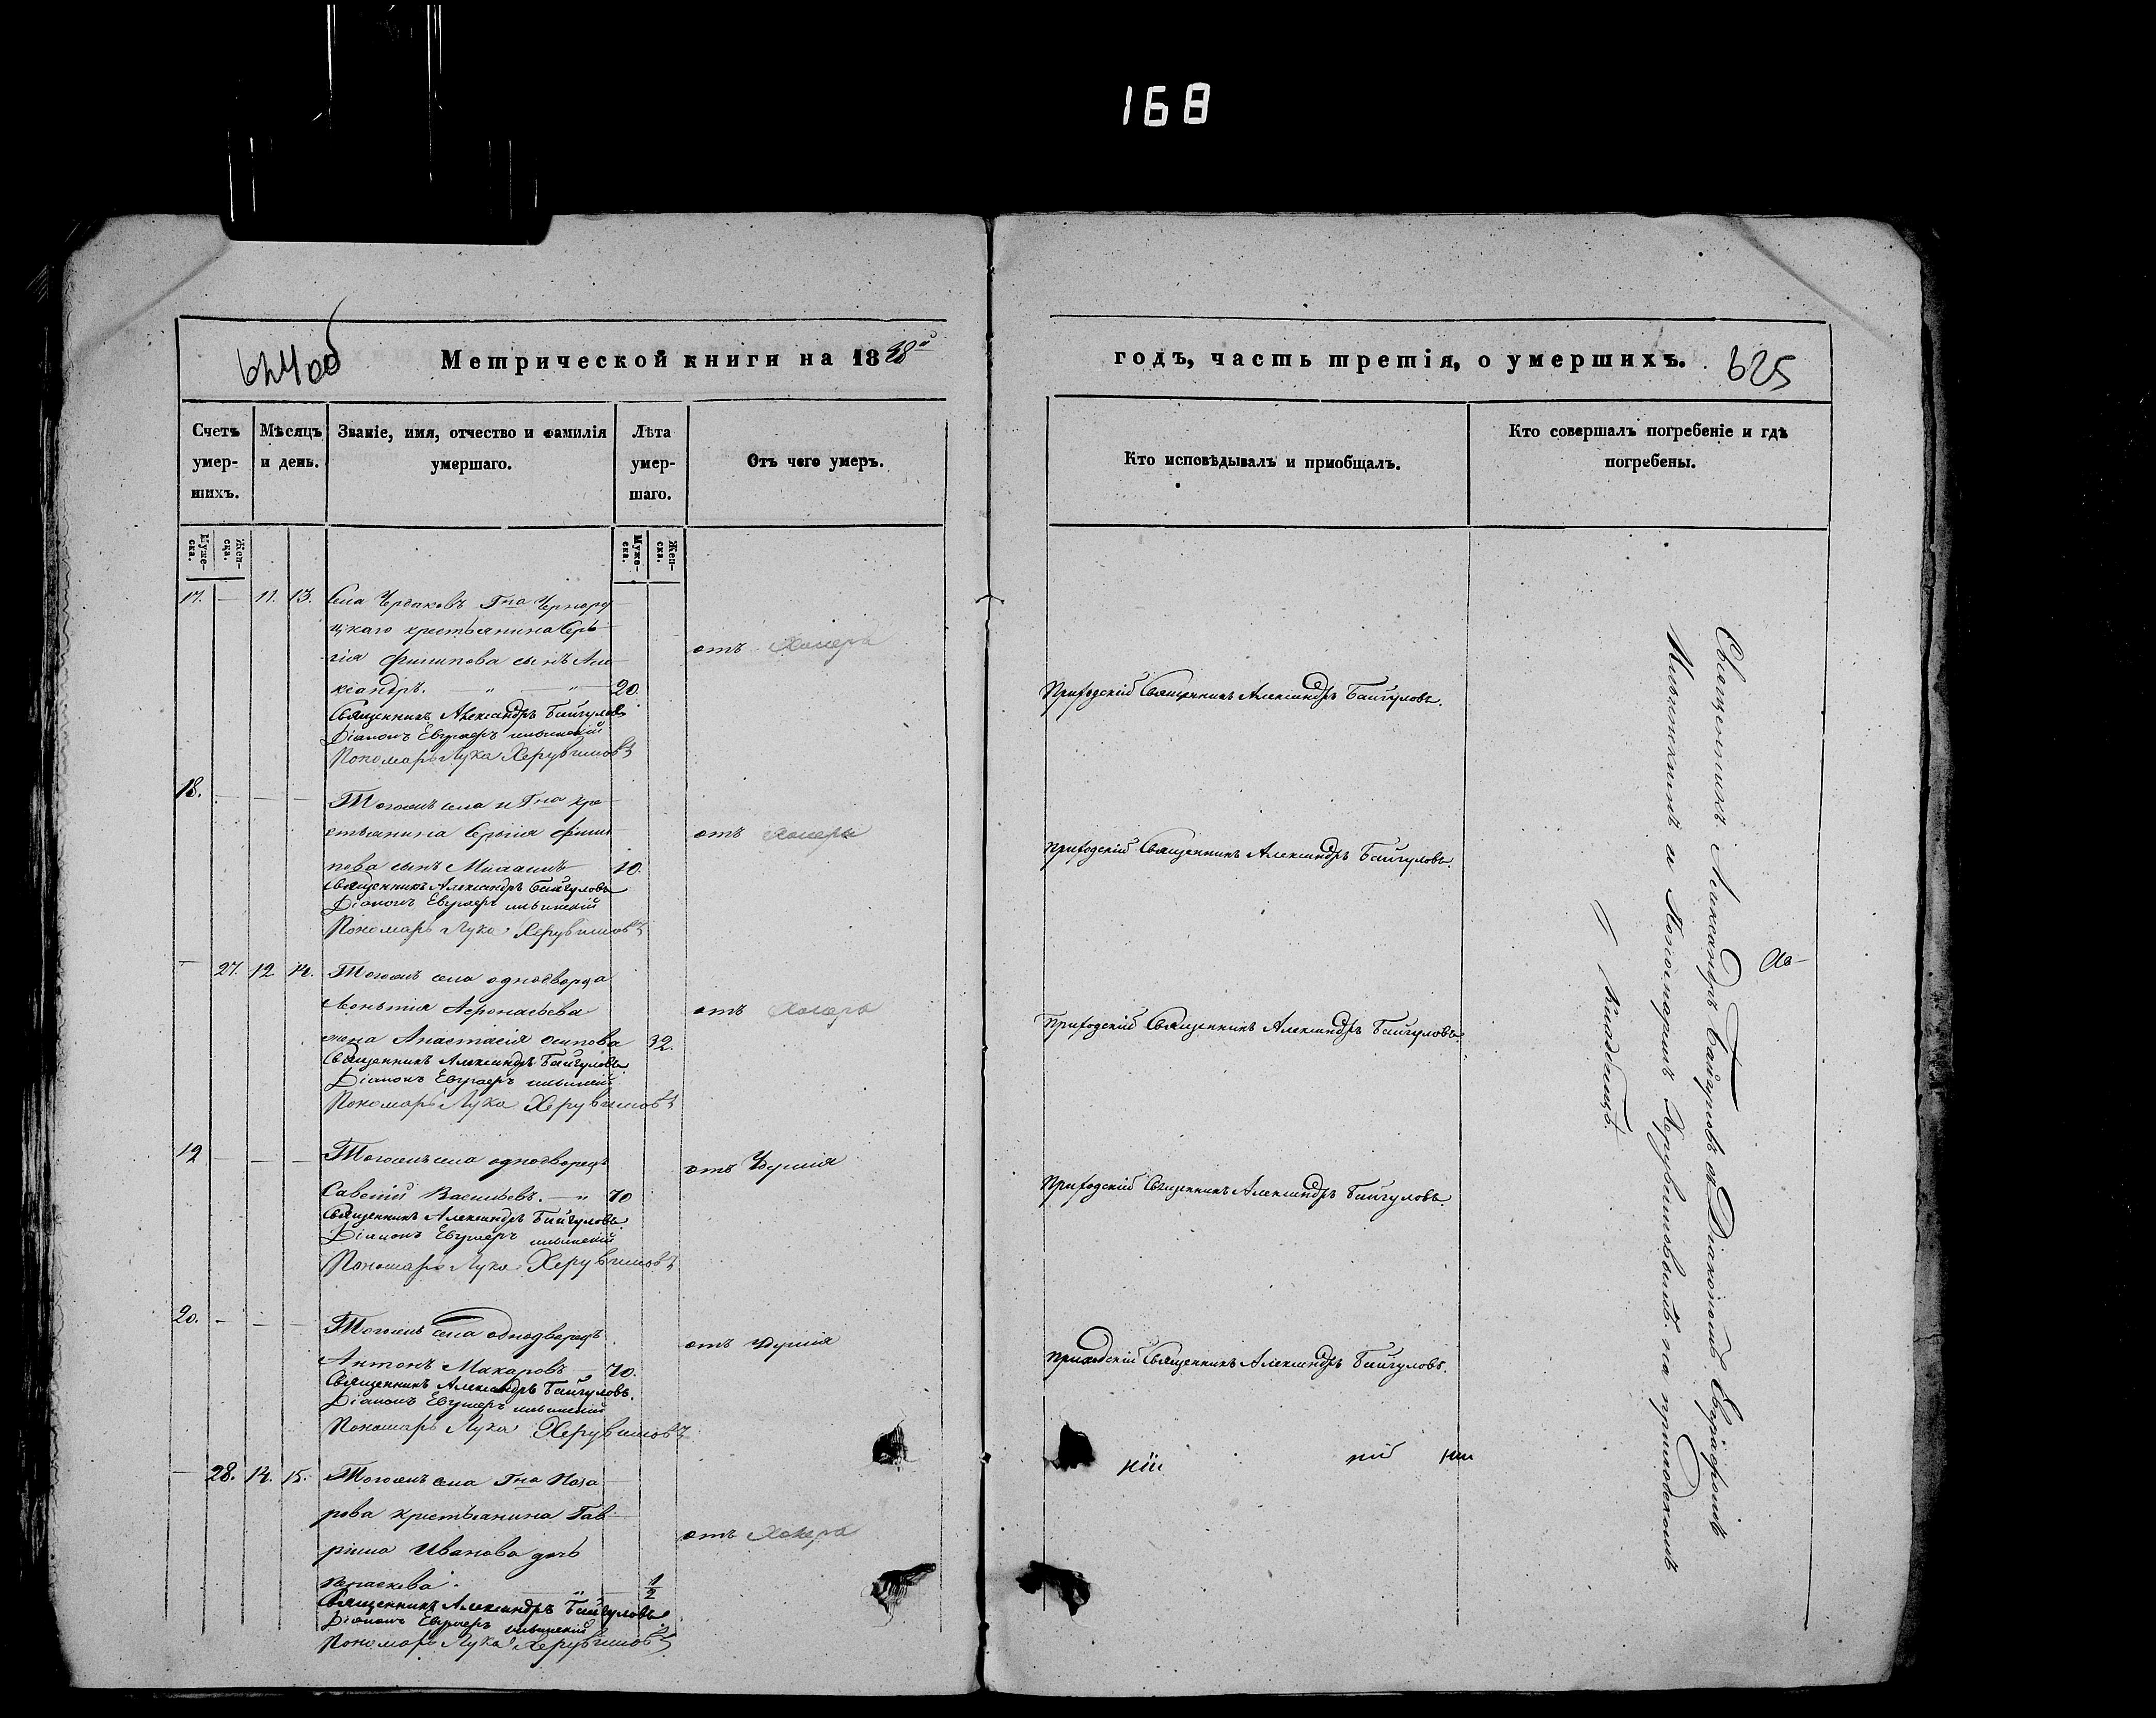 168
624об
Метрической книги на 1848й
годъ, часть третія, о умершихъ.
625
Счетъ умер-шихъ.
Мѣсяцъ и день.
Званіе, имя, отчество и фамилія умершаго.
Лѣта умер-шаго.
Отъ чего умеръ.
Кто исповѣдывалъ и приобщалъ.
Кто совершалъ погребеніе и гдѣ погребены.
Муже-ска.
Жен-ска.
Муже-ска.
Жен-ска.
17. — 11. 13. Села Чердаковъ Гна
крестьянина Сер-
гія Филипова сынъ Але-
ксандръ. — " — " — 20.
отъ Холеры
Приходскій Священникъ Александръ Байгуловъ.
Священникъ Александръ Байгуловъ
Діаконъ Ильинскій
Пономарь Лука Херувимовъ
18. — — — Тогожъ села и Гна кре-
стьянина Сергія Фили-
пова сынъ 10.
отъ Холеры
Приходскій Священникъ Александръ Байгуловъ.
Священникъ Александръ Байгуловъ
Діаконъ Ильинскій
Пономарь Лука Херувимовъ
— 27. 12. 14. Тогожъ села однодворца
Леонтія Афонасьева
жена Анастасія Осипова 32.
отъ Холеры
Приходскій Священникъ Александръ Байгуловъ.
Священникъ Александръ Байгуловъ
Діаконъ Ильинскій
Пономарь Лука Херувимовъ
19 — — — Тогожъ села однодворецъ
Савелій Васильевъ. — " 70
отъ
Приходскій Священникъ Александръ Байгуловъ.
Священникъ Александръ Байгуловъ.
Діаконъ Ильинскій
Пономарь Лука Херувимовъ
20. — — — Тогожъ села однодворецъ
Антонъ Макаровъ — 70.
отъ
Приходскій Священникъ Александръ Байгуловъ.
Священникъ Александръ Байгуловъ.
Діаконъ Ильинскій
Пономарь Лука Херувимовъ
— 28. 14. 15. Тогожъ села Гна
крестьянина Гав-
Иванова дочь
1/2
отъ Холеры
Священникъ Александръ Байгуловъ
Діаконъ Ильинскій
Пономарь Лука Херувимовъ
Священникъ Александръ Байгуловъ съ Діакономъ
Ильинскимъ и Пономаремъ Херувимовымъ на приходскомъ
кладбищѣ.